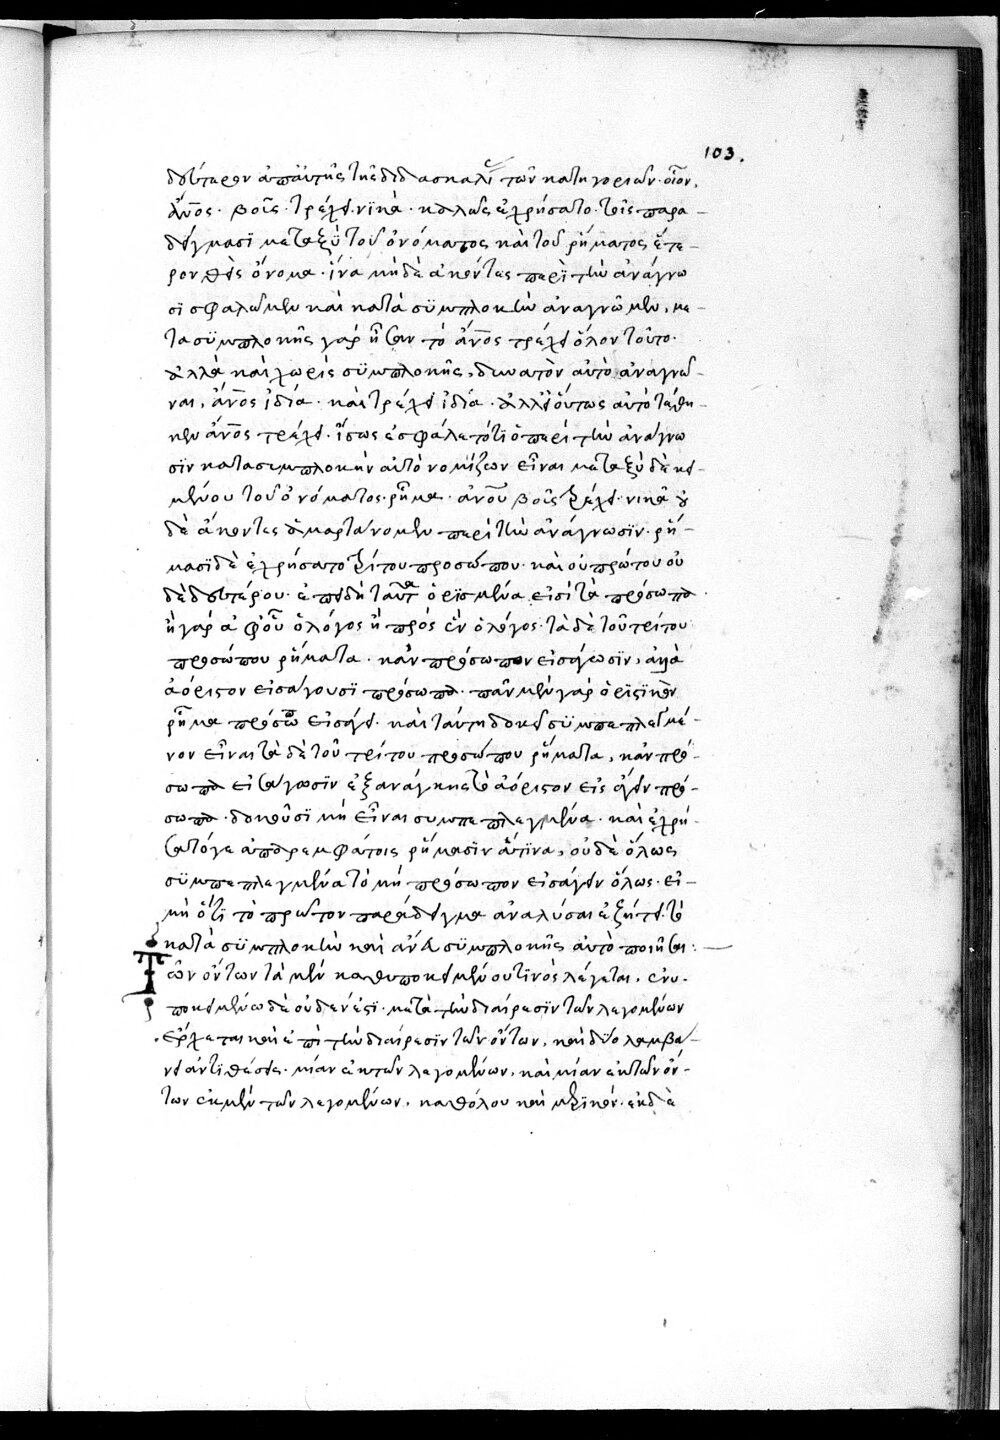 103.
δεύτερον ἀπ' αὐτῆς τῆς διδασκαλί τῶν κατηγοριῶν· οἷον,
ἄνος· βοῦς· τρέχει· νικᾶ· καλῶς ἐχρήσατο τοῖς παρα-
δείγμασι μεταξὺ τοῦ ὀνόματος καὶ τοῦ ῥήματος ἕτε-
ρον θεὶς ὄνομα· ἵνα μὴ δὲ ἄκοντες περὶ τὴν ἀνάγνω
σι σφαλῶμεν καὶ κατὰ συμπλοκὴν ἀναγνῶμεν, με-
τα συμπλοκῆς γάρ ἦσαν τὸ ἄνος τρέχει ὅλον τοῦτο·
ἀλλὰ καὶ χωρὶς συμπλοκῆς, δυνατὸν αὐτὸ ἀναγνῶ-
ναι, ἄνος ἰδία· καὶ τρέχει ἰδία· ἀλλ' εἰ οὕτως αὐτὸ τέθη-
κεν ἄνος τρέχει· ἴσως ἐσφάλετό τι ὁ περὶ τὴν ἀνάγνω
σιν κατα συμπλοκὴν αὐτὸ νομίζων εἶναι μεταξὺ δὲ κει-
μένου τοῦ ὀνόματος· ῥῆμα· ἀνου βοῦς τρέχει· νικᾶ οὐ
δὲ ἄκοντες ἁμαρτάνομεν περὶ τὴν ἀνάγνωσιν· ῥή-
μασι δὲ ἐχρήσατο τρίτου προσώπου· καὶ οὐ πρώτου οὐ
δὲ δευτέρου· ἐπειδὴ ταῦτα ὁρισμένα εἰσὶ τὰ πρόσωπα·
ἢ γάρ ἀφ' οὗ ὁ λόγος ἢ πρὸς ὃν ὁ λόγος· τὰ δὲ τοῦ τρίτου
προσώπου ῥήματα· κἂν πρόσωπον εἰσάγωσιν, ἀλλὰ
ἀόριστον εἰσάγουσι πρόσωπον· πᾶν μὲν γάρ ὁριστικὸν
ῥῆμα πρόσωπον εἰσάγει· καὶ ταύτη δοκεῖ συμπεπλεγμέ-
νον εἶναι τὰ δὲ τοῦ τρίτου προσώπου ῥήματα, κἂν πρό-
σωπον εἰσάγωσιν ἐξανάγκης τὸ ἀόριστον εἰσάγειν πρό-
σωπον· δοκοῦσι μὴ εἶναι συμπεπλεγμένα· καὶ ἐχρή-
σατό γε ἀπαρεμφάτοις ῥήμασιν ἅτινα, οὐδὲ ὅλως
συμπεπλεγμένα τὸ μὴ πρόσωπον εἰσάγειν ὅλως· εἰ-
μὴ ὅτι τὸ πρῶτον παράδειγμα ἀναλύσαι ἐζήτει τὸ
κατὰ συμπλοκὴν καὶ ἄνευ συμπλοκῆς αὐτὸ ποιῆσαι:
Τῶν ὄντων τὰ μὲν καθυποκειμένου τινὸς λέγεται, ἐνυ-
ποκειμένω δὲ οὐδενὶ ἐστι· μετὰ τὴν διαίρεσιν τῶν λεγομένων
ἔρχεται καὶ ἐπὶ τὴν διαίρεσιν τῶν ὄντων, καὶ δύο λαμβά-
νει ἀντιθέσεις· μίαν ἐκ τῶν λεγομένων, καὶ μίαν ἐκ τῶν ὄν-
των ἐκ μὲν τῶν λεγομένων, καθόλου καὶ μερικόν· ἐκ δὲ